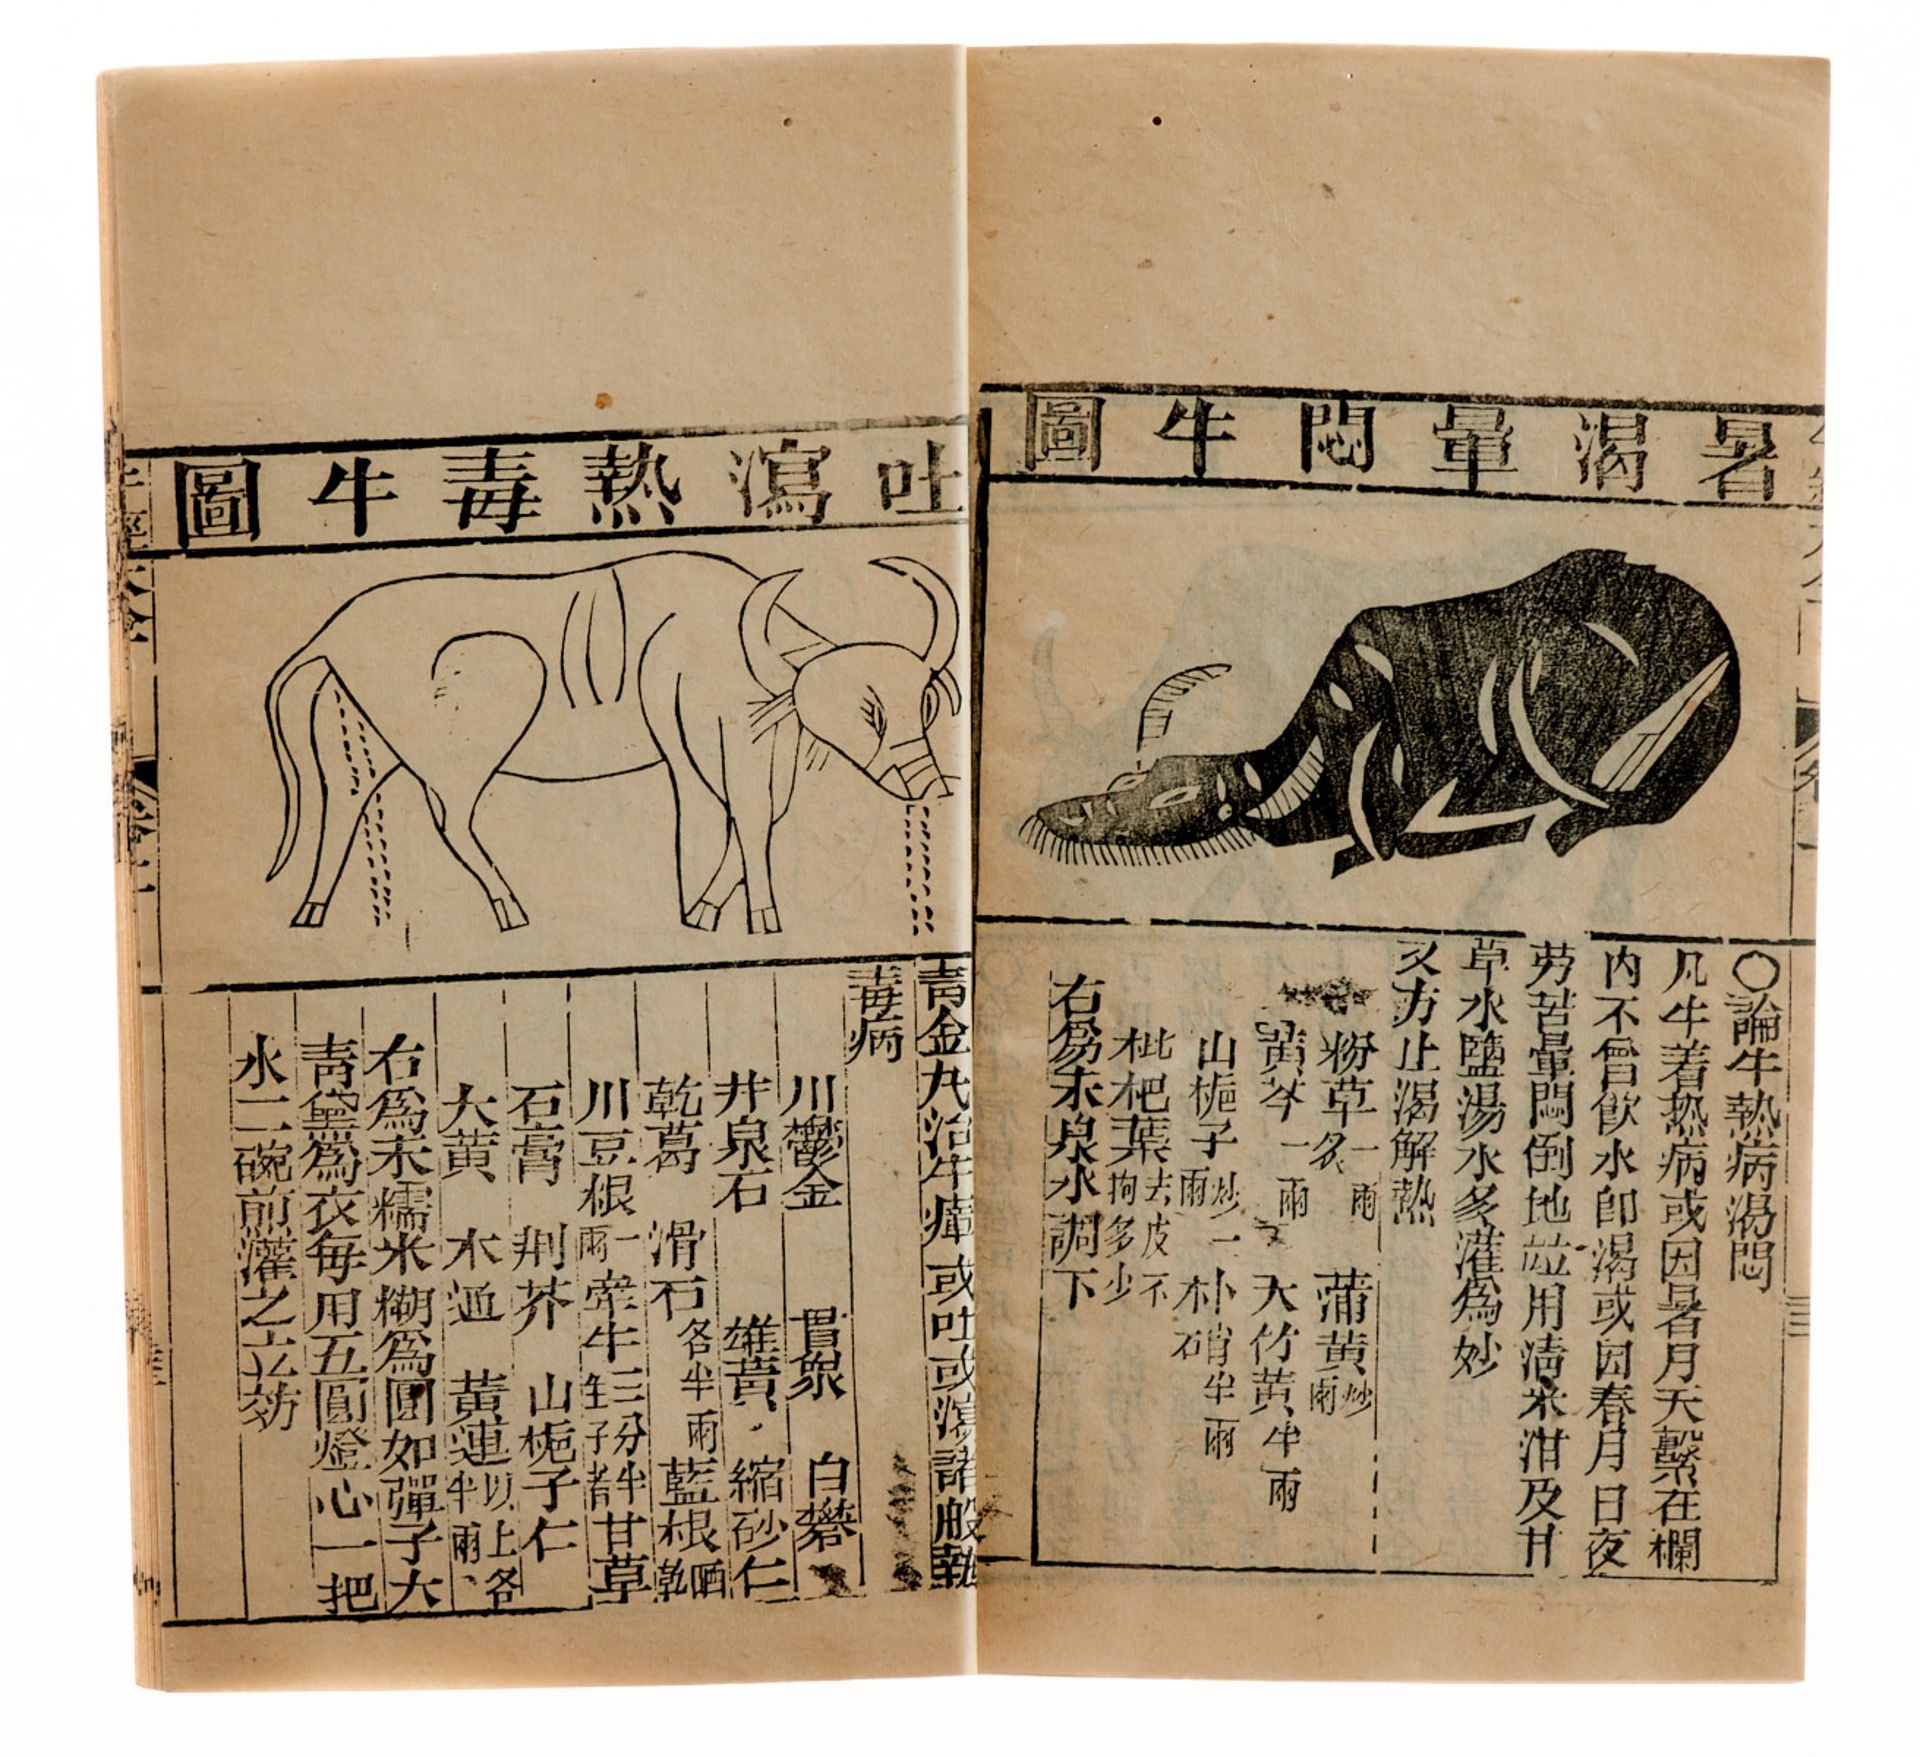 暑渴暈悶牛圖
○論牛熱病渴悶
凡牛着热病或因暑月天繫在欄
内不曾飲水卽渴或因春月日夜
劳苦暈悶倒地竝用清米泔及甘
草水鹽湯水多灌為妙
又方止渴解熱
粉草一兩炙 蒲黄炒一兩
黄芩一兩 天竹黄半兩
山梔子炒一兩 朴硝半兩
枇杷葉去皮不拘多少
右為末泉水調下
吐瀉熱毒牛圖
青金丸治牛瘴或吐或瀉諸般熱
毒病
川鬱金 貫衆 白礬
井泉石 雄黄 縮砂仁
乾葛 滑石各半兩 藍根晒乾
川豆根一兩 牽牛三分半生半者 甘草
石膏 荆芥 山梔子仁
大黄 木通 黄連以上各半兩
右為末糯米糊為圓如彈子大
青黛為衣每用五圓燈心一把
水二碗前灌之立效